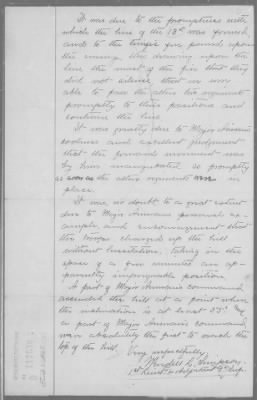 It was due to the promptness with
which the line of the 13th was formed,
and to the fire poured upon
the enemy, thus drawing upon the
line the most of the fire that they
did not advance that we were
able to pass the other two regiments
promptly to their positions and
continue the
It was greatly due to Major
coolness and excellent judgment
that the forward movement was
by him inaugurated as promptly
as soon as the other regiments were in
place.
It was no doubt to a great extent
due to Major personal ex-
ample and encouragement that
the troops charged up the hill
without hesitation, taking in the
space of a few minutes an ap-
parently impregnable position
A part of Major command
ascended the hill at a point where
the inclination is at least 35°, and
a part of Major command
was absolutely the first to reach the
top of the hill.
Very respectfully,
Wendell L. Simpson,
1st Lieut & Adjutant 9th Inf.